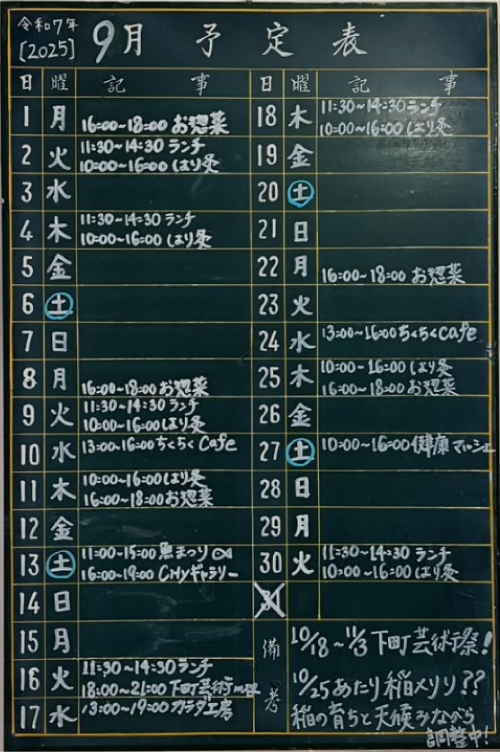 令和7年
[2025] 9月 予定表
日 曜 記事
1 月 16:00~18:00 お惣菜
2 火 11:30~14:30 ランチ
10:00~16:00 はり灸
3 水
4 木 11:30~14:30 ランチ
10:00~16:00 はり灸
5 金
6 土
7 日
8 月 16:00~18:00 お惣菜
9 火 11:30~14:30 ランチ
10:00~16:00 はり灸
10 水 13:00~16:00 ちくちく Cafe
11 木 10:00~16:00 はり灸
16:00~18:00 お惣菜
12 金
13 土 11:00~15:00 魚まつり
16:00~19:00 CHyギャラリー
14 日
15 月
16 火 11:30~14:30 ランチ
18:00~21:00 下町芸術
17 水 13:00~19:00 カラダ工房
日 曜 記事
18 木 11:30~14:30 ランチ
10:00~16:00 はり灸
19 金
20 土
21 日
22 月 16:00~18:00 お惣菜
23 火
24 水 13:00~16:00 ちくちく Cafe
25 木 10:00~16:00 はり灸
16:00~18:00 お惣菜
26 金
27 土 10:00~16:00 健康マルシェ
28 日
29 月
30 火 11:30~14:30 ランチ
10:00~16:00 はり灸
31
備考 10/18~11/3 下町芸術祭!
10/25あたり稲メリリ??
稲の育ちと天候みながら
調整中!